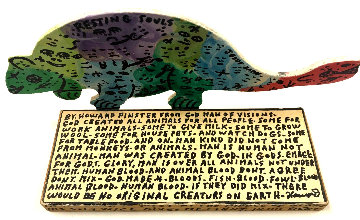 RESTING SOULS
BY. HOWARD FINSTER FROM GOD MAN OF VISIONS.
GOD CREATED ALL ANIMALS FOR ALL PEOPLE. SOME FOR
WORK ANIMALS-SOME TO GIVE MILK-SOME TO GROW
WOOL-SOME FOR HOUSE PETS-AND WATCH DOGS. SOME
FOR TABLE FOOD. AND ON. MAN DID DID NOT COME
FROM MONKEYS-OR ANIMALS. MAN IS HUMAN NOT
ANIMAL-MAN WAS CREATED BY GOD. IN GODS. IMAGE
FOR GODS. GLORY. MAN IS OVER ALL ANIMALS NOT UNDER
THEM. HUMAN BLOOD. AND ANIMAL BLOOD DON'T AGREE
DON'T MIX-GOD MADE 4. BLOODS. FISH BLOOD. FOWL BLOOD
ANIMAL BLOOD. HUMAN BLOOD. IF THEY DID MIX. THERE
WOULD BE NO ORIGINAL CREATURS ON EARTH-Howard